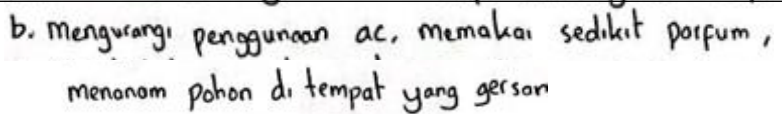 b. mengurangi penggunaan ac, memakai sedikit porfum,
menanam pohon di tempat yang gersan